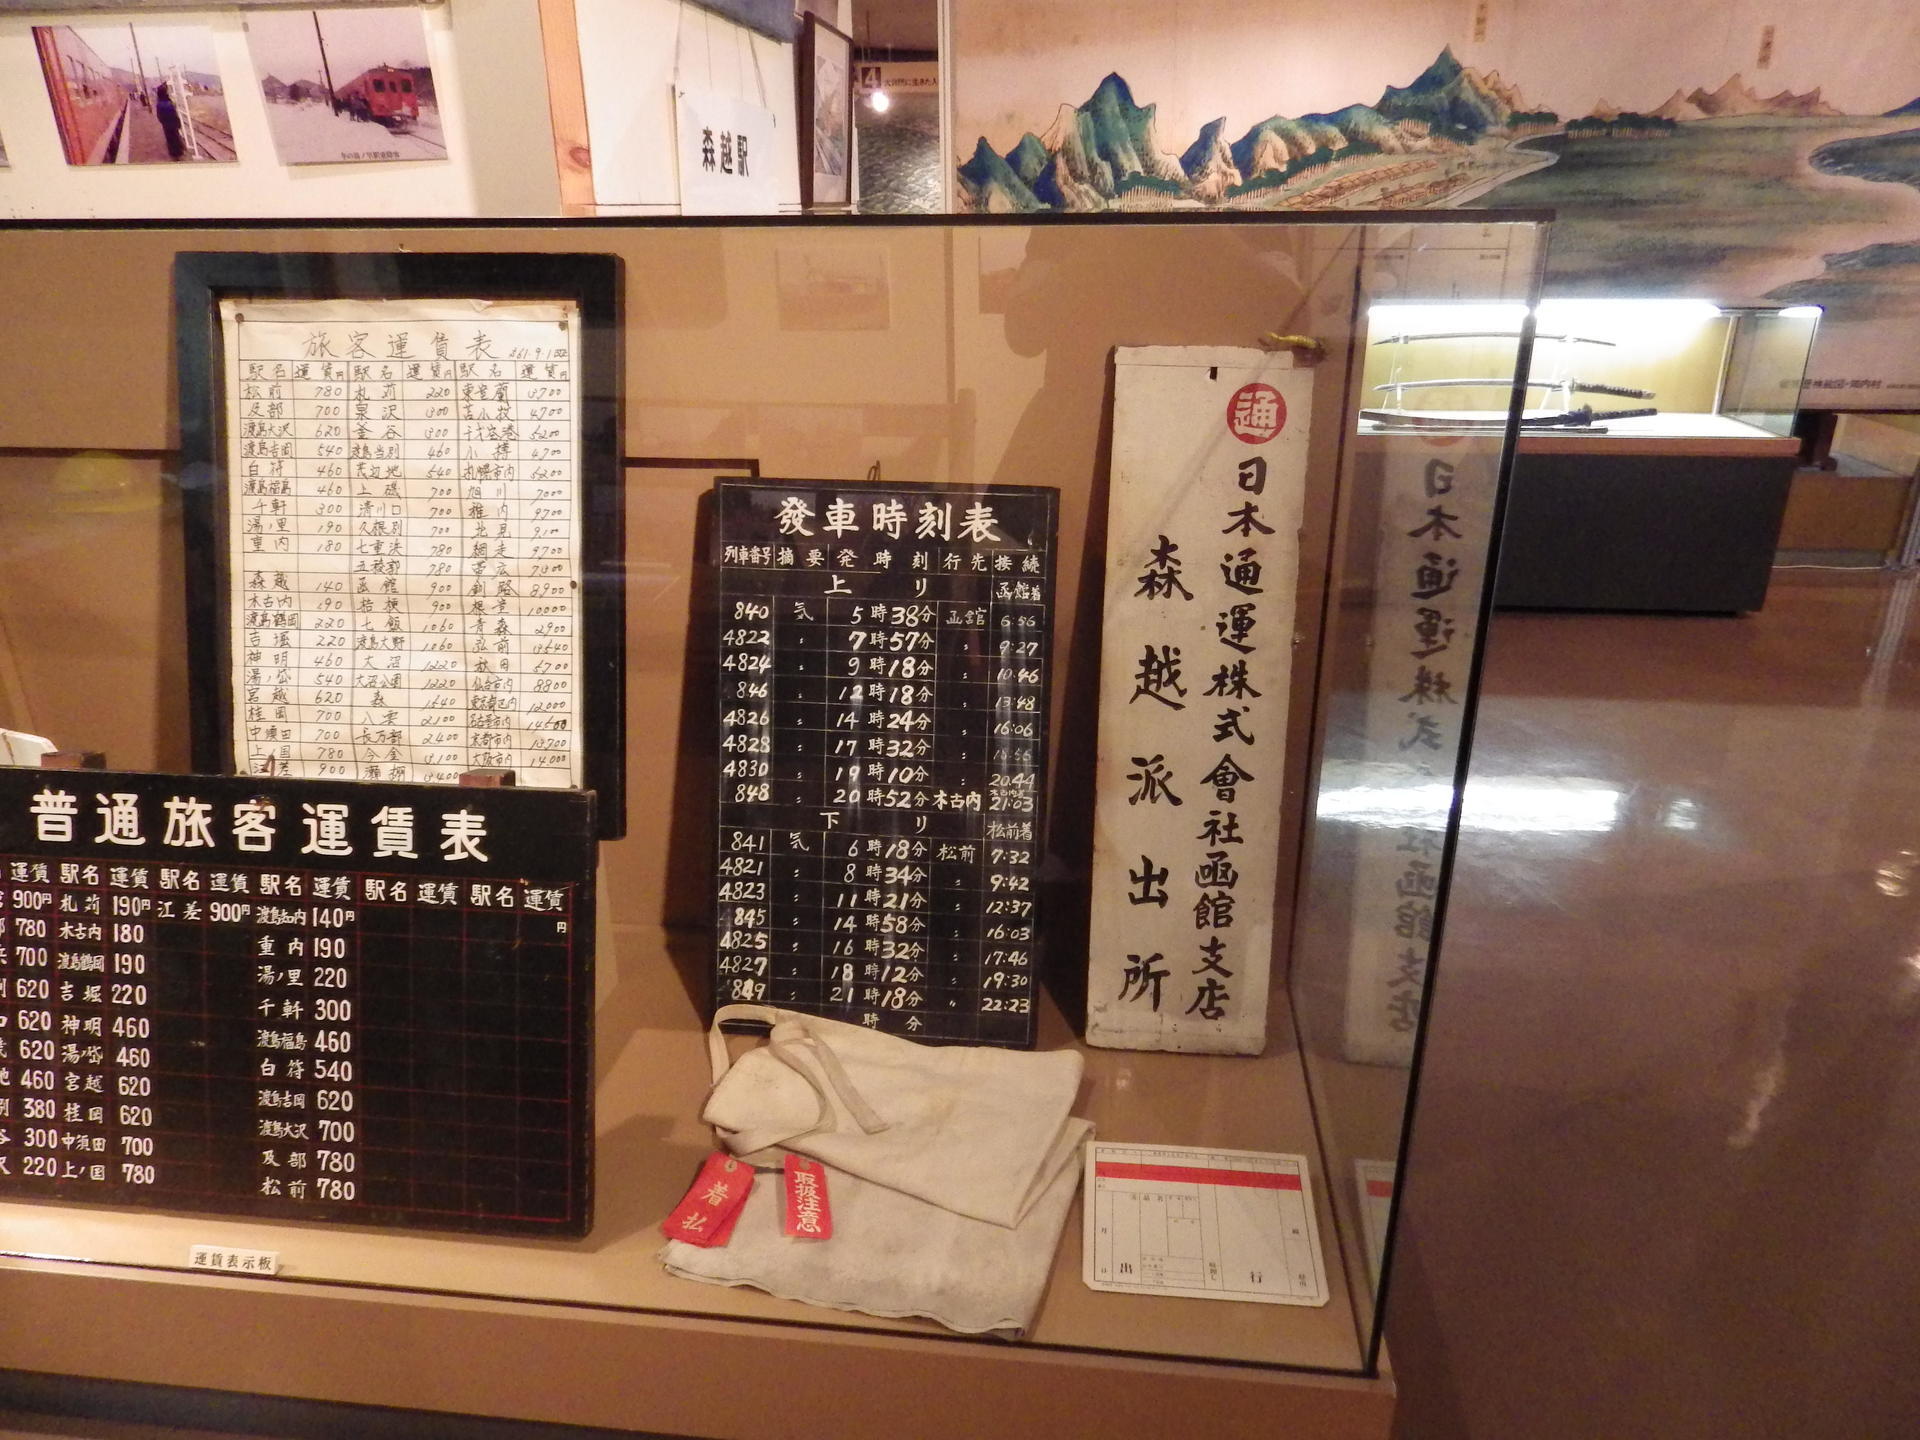 冬の湯ノ里駅乗降客
森越駅
4
旅客運賃表 S61.9.1改正
駅名 運賃円 駅名 運賃円 駅名 運賃円
松前 780 札苅 220 東室蘭 3700
及部 700 泉沢 300 苫小牧 4700
渡島大沢 620 釜谷 300 千才空港 5200
渡島吉岡 540 渡島当別 460 小樽 4700
白符 460 茂辺地 540 札幌市内 5200
渡島福島 460 上磯 700 旭川 7000
千軒 300 清川口 700 稚内 9700
湯ノ里 190 久根別 700 北見 9100
重内 180 七重浜 780 網走 9700
五稜郭 780 帯広 7300
森越 140 函館 900 釧路 8900
木古内 190 桔梗 900 根室 10,000
渡島鶴岡 220 七飯 1060 青森 2900
吉堀 220 渡島大野 1060 弘前 3540
神明 460 大沼 1220 秋田 5700
湯ノ岱 540 大沼公園 1220 仙台市内 8800
宮越 620 森 1540 東京都区内 12000
桂岡 700 八雲 2100 名古屋市内 14500
中須田 700 長万部 2400 京都市内 13700
上ノ国 780 今金 3100 大阪市内 14000
江差 900 瀬棚 3400
發車時刻表
列車番号 摘要 発時刻 行先 接続
上リ 函館着
840 気 5時38分 函館 6:56
4822 〃 7時57分 〃 9:27
4824 〃 9時18分 〃 10:46
846 〃 12時18分 〃 13:48
4826 〃 14時24分 〃 16:06
4828 〃 17時32分 〃 18:56
4830 〃 19時10分 〃 20:44
848 〃 20時52分 木古内 木古内着 21:03
下リ 松前着
841 気 6時18分 松前 7:32
4821 〃 8時34分 〃 9:42
4823 〃 11時21分 〃 12:37
845 〃 14時58分 〃 16:03
4825 〃 16時32分 〃 17:46
4827 〃 18時12分 〃 19:30
849 〃 21時18分 〃 22:23
時 分
通
日本通運株式會社函館支店
森越派出所
普通旅客運賃表
運賃 駅名 運賃 駅名 運賃 駅名 運賃 駅名 運賃 駅名 運賃
900円 札苅 190円 江差 900円 渡島知内 140円 円
780 木古内 180 重内 190
700 渡島鶴岡 190 湯ノ里 220
620 吉堀 220 千軒 300
620 神明 460 渡島福島 460
620 湯ノ岱 460 白符 540
460 宮越 620 渡島吉岡 620
380 桂岡 620 渡島大沢 700
300 中須田 700 及部 780
220 上ノ国 780 松前 780
運賃表示板
着払
取扱注意
品名
月
日 出 行